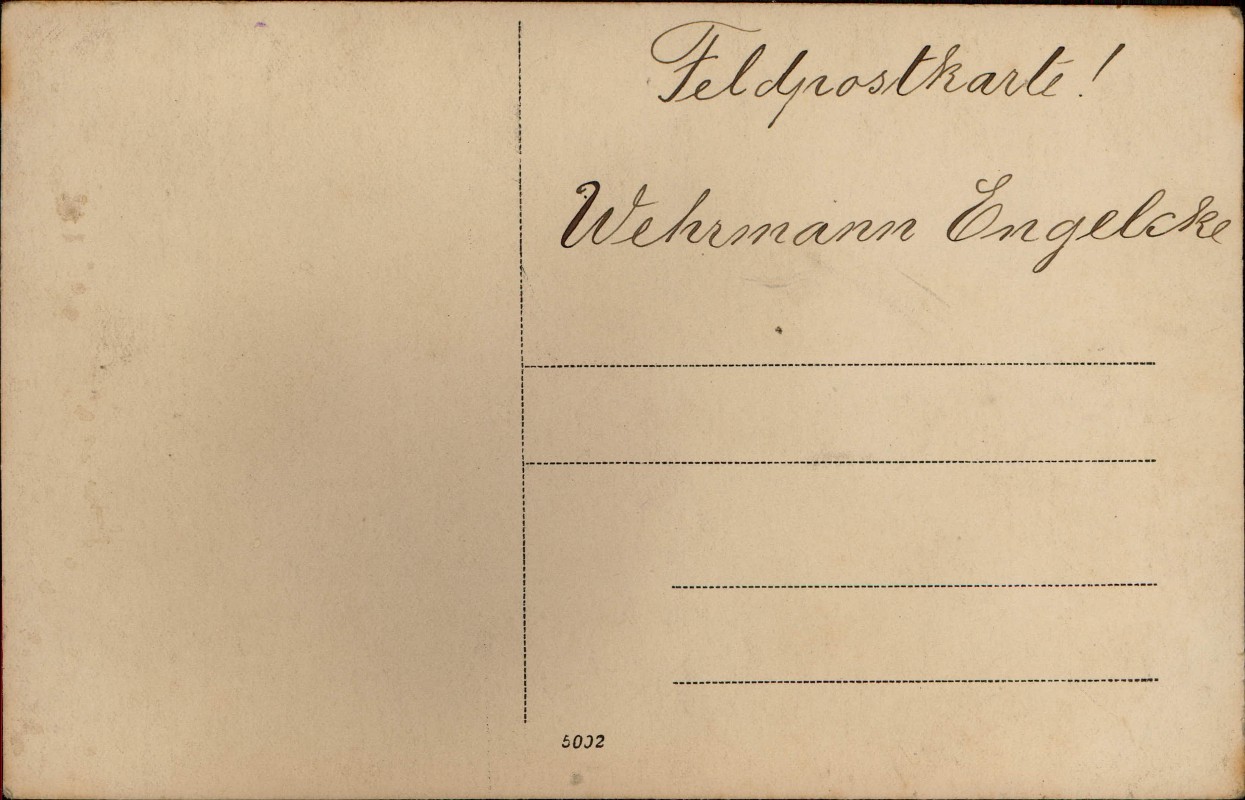 Feldpostkarte!
Wehrmann Engelcke
5002